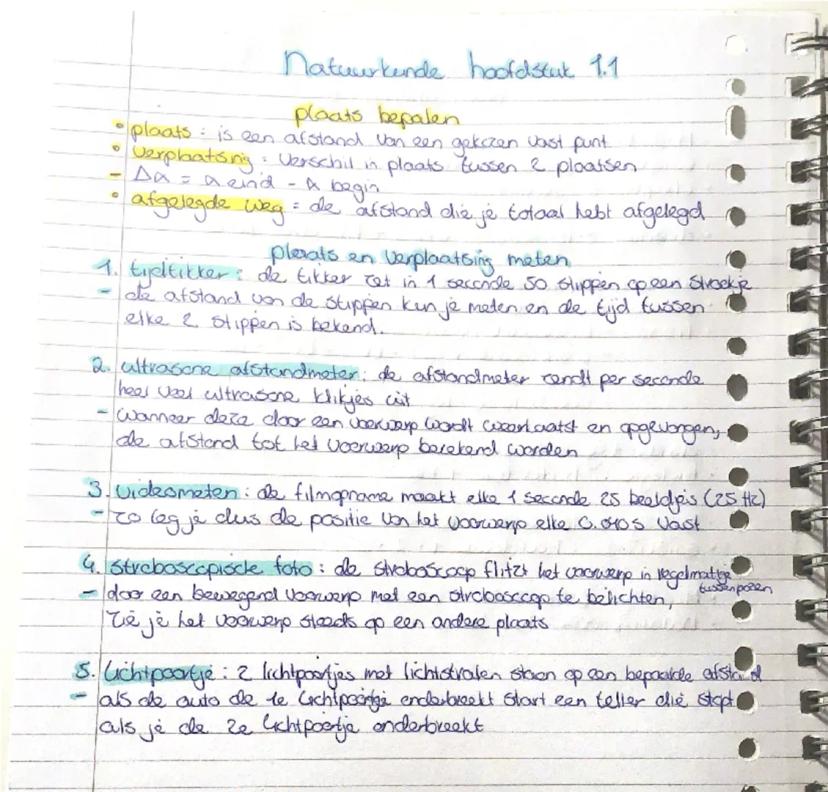 Natuurkunde hoofdstuk 1.1
plaats bepalen
• plaats : is een afstand van een gekozen vast punt
• verplaatsing : verschil in plaats tussen 2 plaatsen
- Δx = x eind - x begin
• afgelegde weg = de afstand die je totaal hebt afgelegd
plaats en verplaatsing meten
1. tijdtikker : de tikker zet in 1 seconde 50 stippen op een strookje
- de afstand van de stippen kun je meten en de tijd tussen
elke 2 stippen is bekend.
2. ultrasone afstandmeter : de afstandmeter zendt per seconde
heel veel ultrasone klikjes uit
- wanneer deze door een voorwerp wordt weerkaatst en opgevangen,
de afstand tot het voorwerp berekend worden
3. videometen : de filmopname maakt elke 1 seconde 25 beeldjes (25 Hz)
- zo leg je dus de positie van het voorwerp elke 0.040 s vast
4. stroboscopische foto : de stroboscoop flitst het voorwerp in regelmatige
tussenpozen
- door een bewegend voorwerp met een stroboscoop te belichten,
zie je het voorwerp steeds op een andere plaats
5. lichtpoortje : 2 lichtpoortjes met lichtstralen staan op een bepaalde afstand
- als de auto de 1e lichtpoortje onderbreekt start een teller die stopt
als je de 2e lichtpoortje onderbreekt